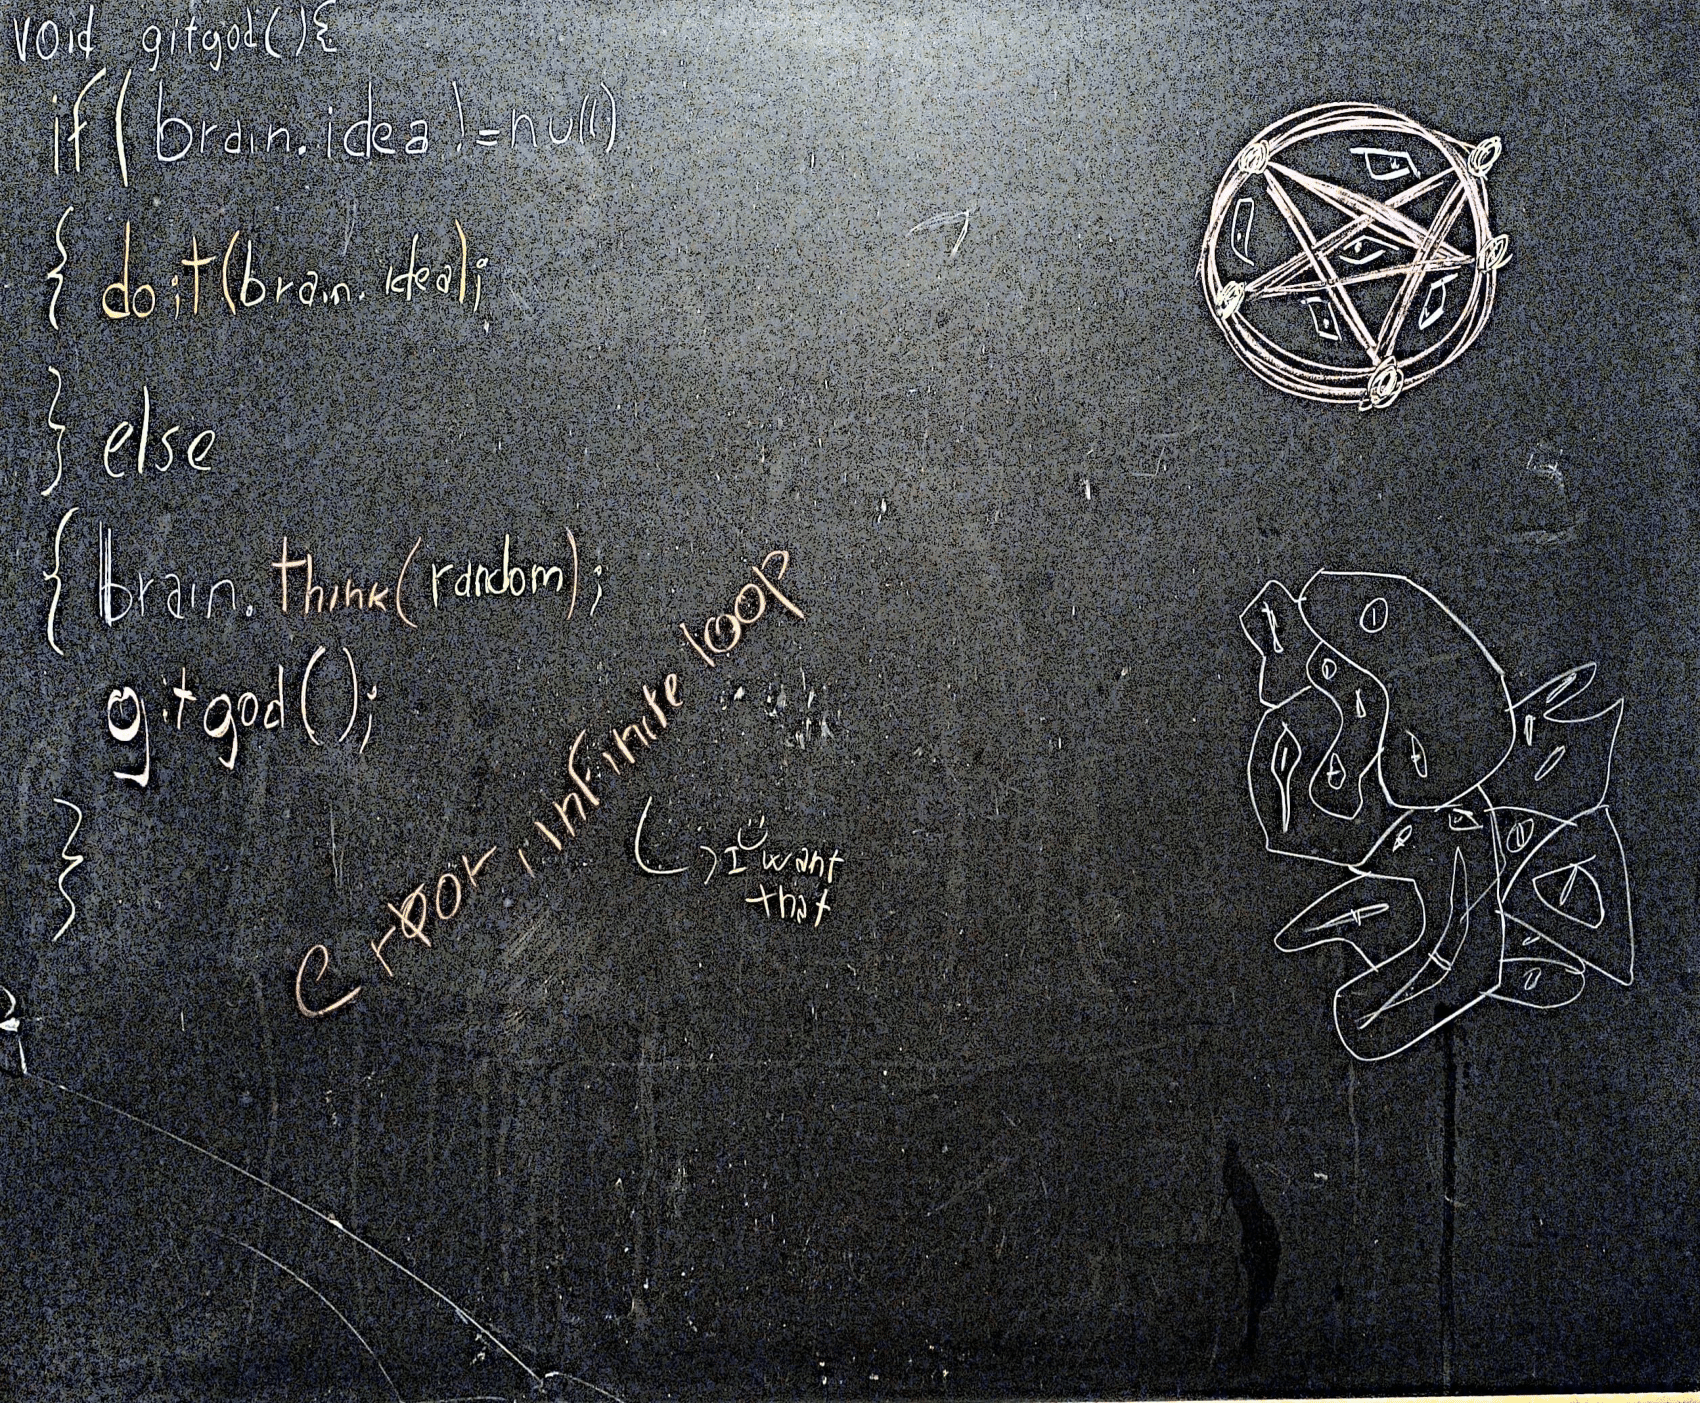 void gitgod(){
if( brain.idea !=null)
{ doit(brain.idea);
} else
{ brain.think(random);
gitgod();
}
error, infinite loop
(,) I want
that